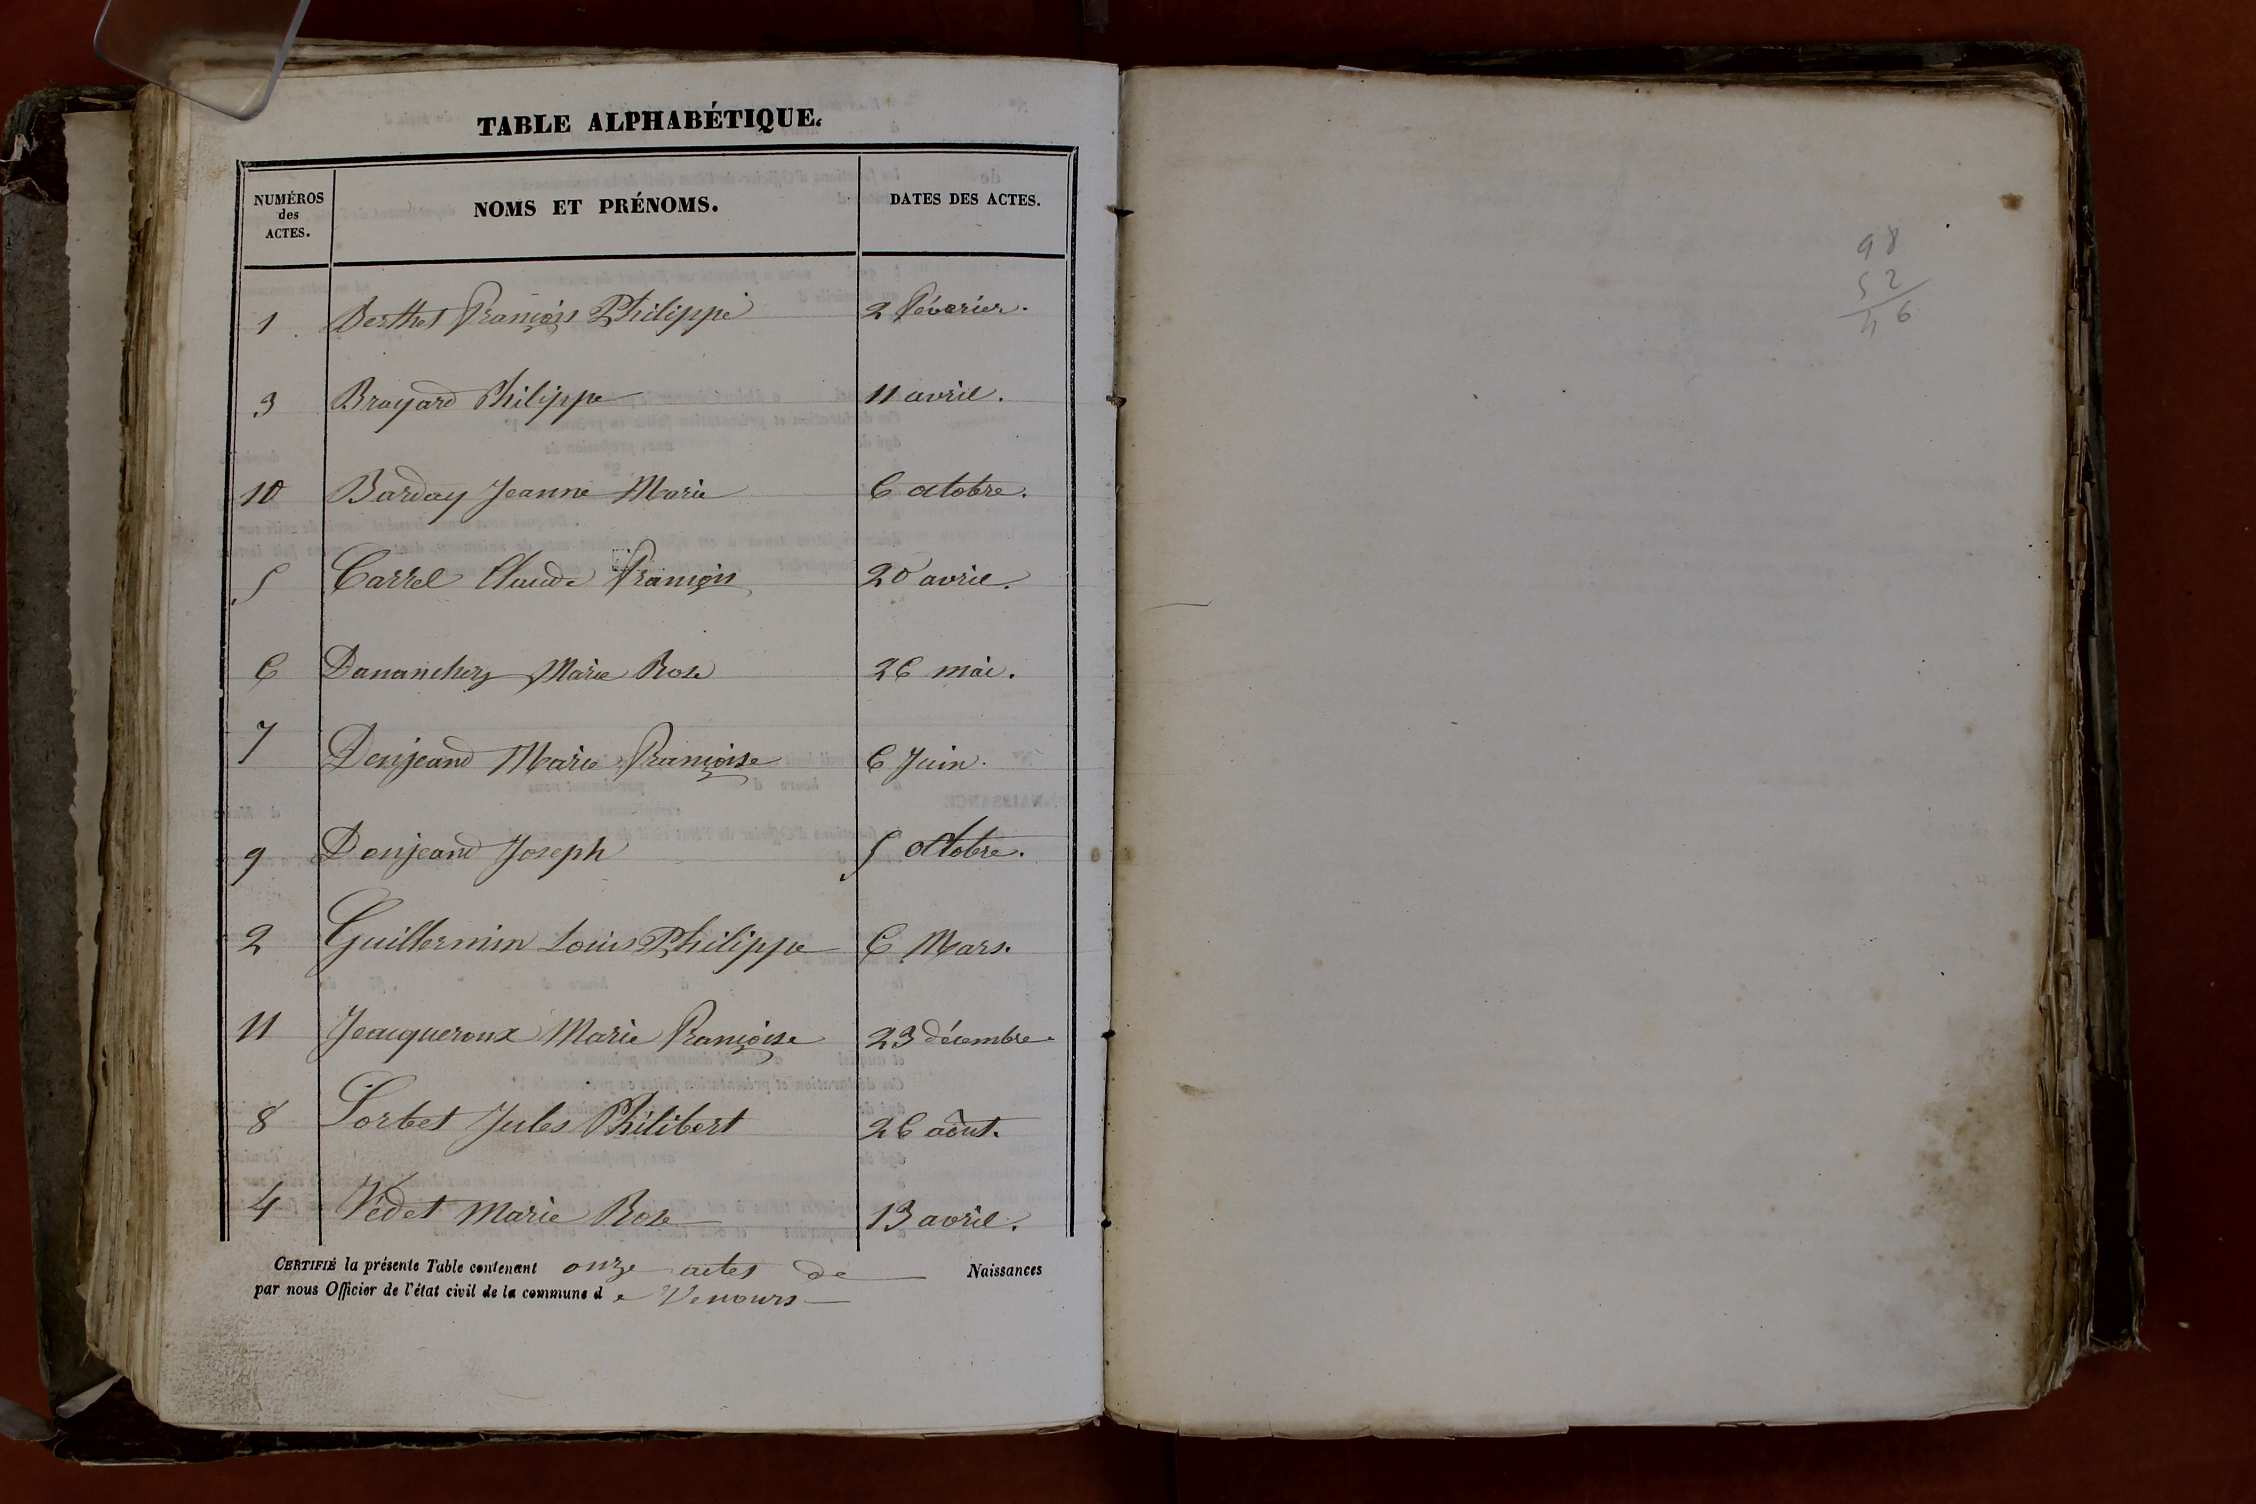 TABLE ALPHABÉTIQUE.
NUMÉROS des ACTES. NOMS ET PRÉNOMS. DATES DES ACTES.
1 Berthet François Philippe 2 février.
3 Brayard Philippe 11 avril.
10 Barday Jeanne Marie 6 octobre.
5 Carrel Claude François 20 avril.
6 Dananchez Marie Rose 26 mai.
7 Denjeand Marie Françoise 6 Juin.
9 Denjeand Joseph 5 octobre.
2 Guillermin Louis Philippe 6 Mars.
11 Jeacqueroux Marie Françoise 23 décembre.
8 Sorbet Jules Philibert 26 août.
4 Védet Marie Rose 13 avril.
CERTIFIÉ la présente Table contenant onze actes de Naissances
par nous Officier de l'état civil de la commune de Venours
98
52
46